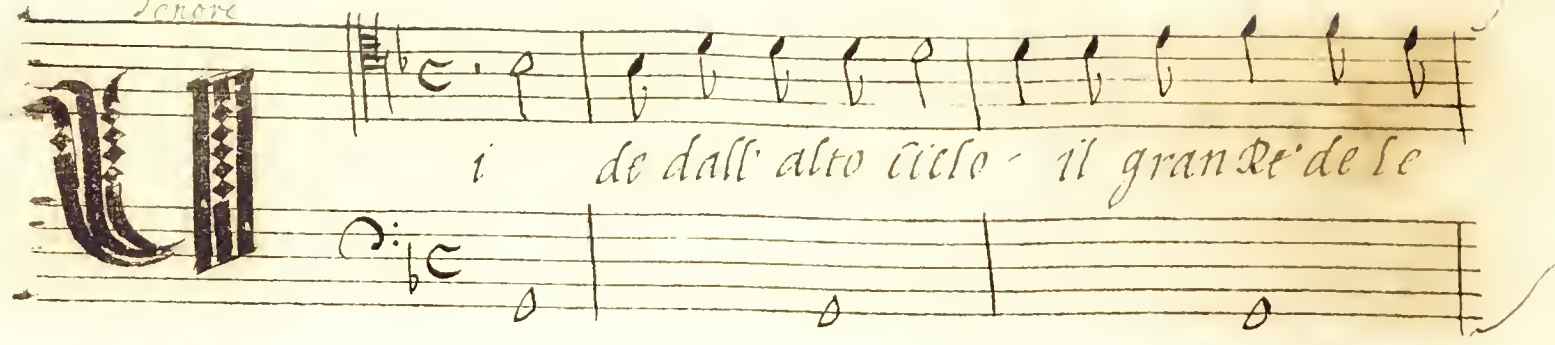 Tenore
Vi de dall' alto Cielo il gran Re de le